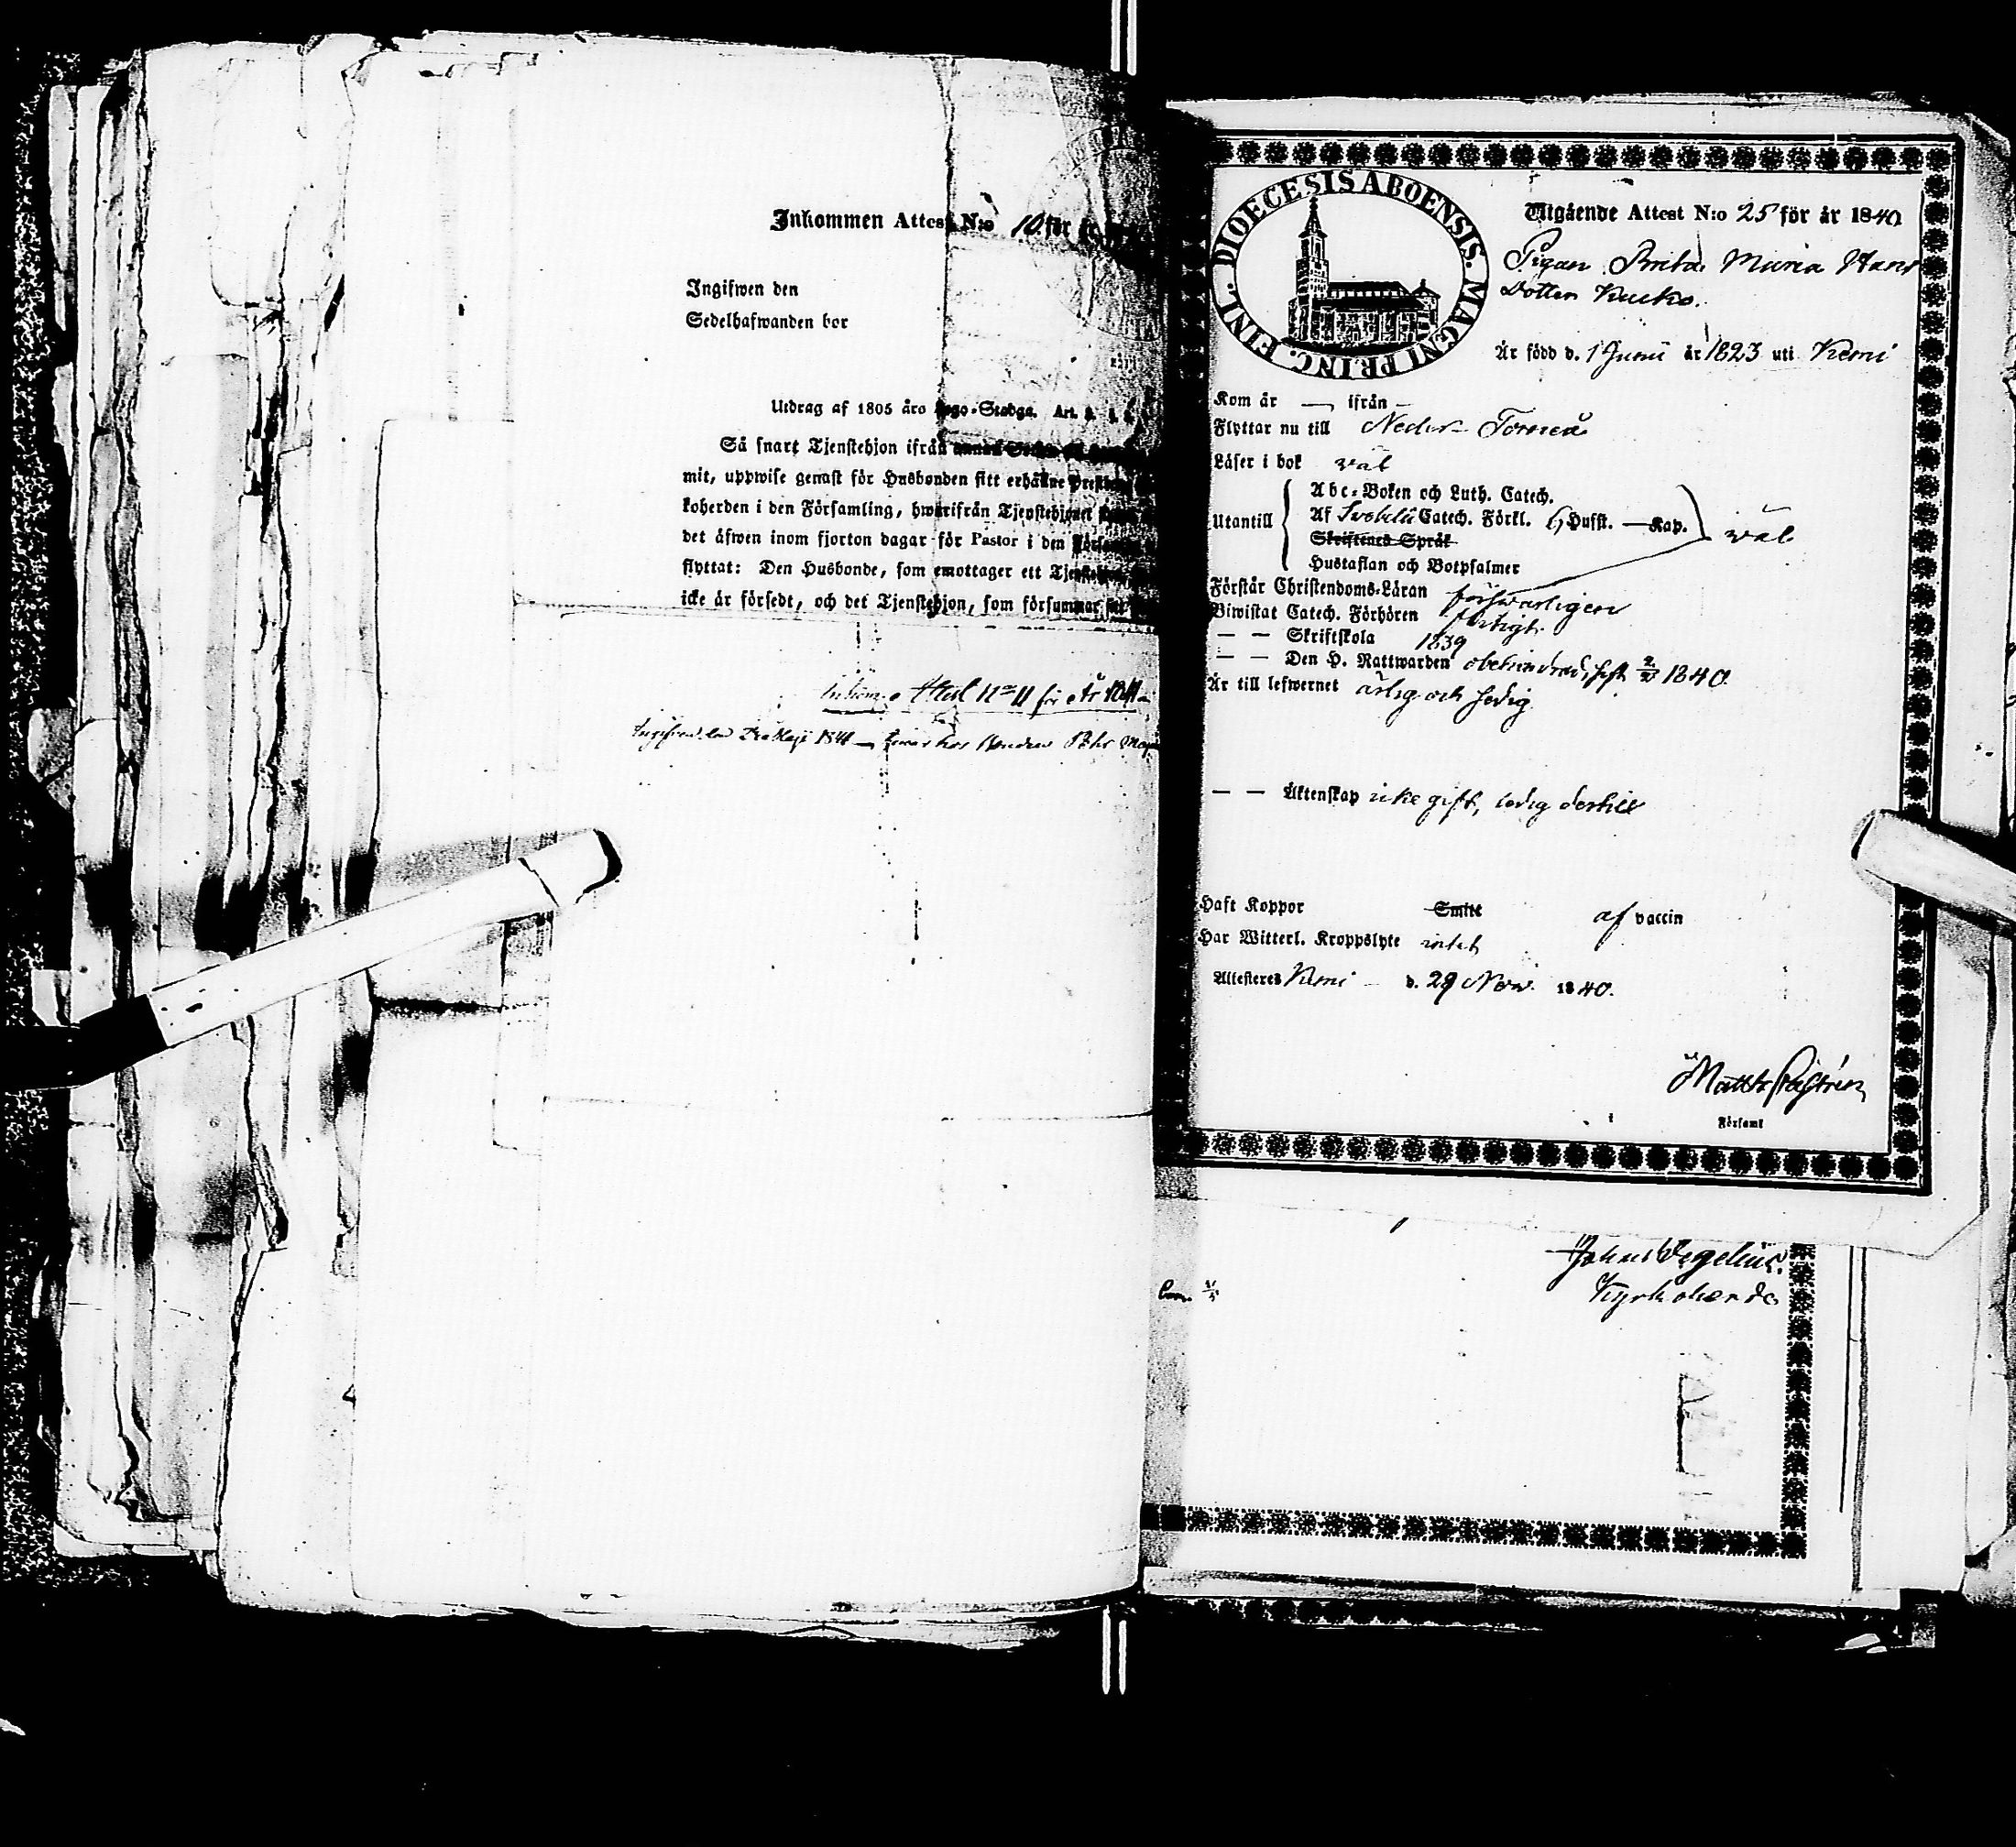 Inkommen Attest N:o 10. för
Ingifwen den
Sedelhafwanden bor
Utdrag af 1805 års Lego-Stadga. Art.
Så snart Tjenstehjon ifrån
mit, uppwise genast för Husbonden sitt erhållne
koherden i den Församling, hwarifrån Tjenstehjonet
det äfwen inom fjorton dagar för Pastor i den
flyttat: Den Husbonde, som emottager ett
icke är försedt, och det Tjenstehjon, som försummar
Attest N:o 11 för År 1841
Ingifwen den Maji 1841 — hos Bonden Pehr
DIOECESIS ABOENSIS. MAGNI PRINC. FINL.
Utgående Attest N:o 25 för år 1840
Pigan Brita Maria Hans
dotter Kucko.
Är född d. 1 Junii år 1823 uti Kemi
Kom år — ifrån —
Flyttar nu till Neder-Torneå
Läser i bok wäl
Abc-Boken och Luth. Catech.
Utantill Af Svebilii Catech. Förkl. 6 Hufst. — Kap. wäl
Skriftenes Språk
Hustaflan och Botpsalmer
Förstår Christendoms-Läran försvarligen
Biwistat Catech. Förhören flitigt
— — Skriftskola 1839
— — Den H. Nattwarden obehindrad, sist 1840.
Är till lefwernet ärlig och sedig
— — Äktenskap icke gift, ledig dertill
Haft Koppor Smitt af vaccin
Har Witterl. Kroppslyte intet
Attesteres Kemi — d. 29 Nov. 1840.
Matth. Castrén
Församl
Johan Wegelius.
Kyrkoherde